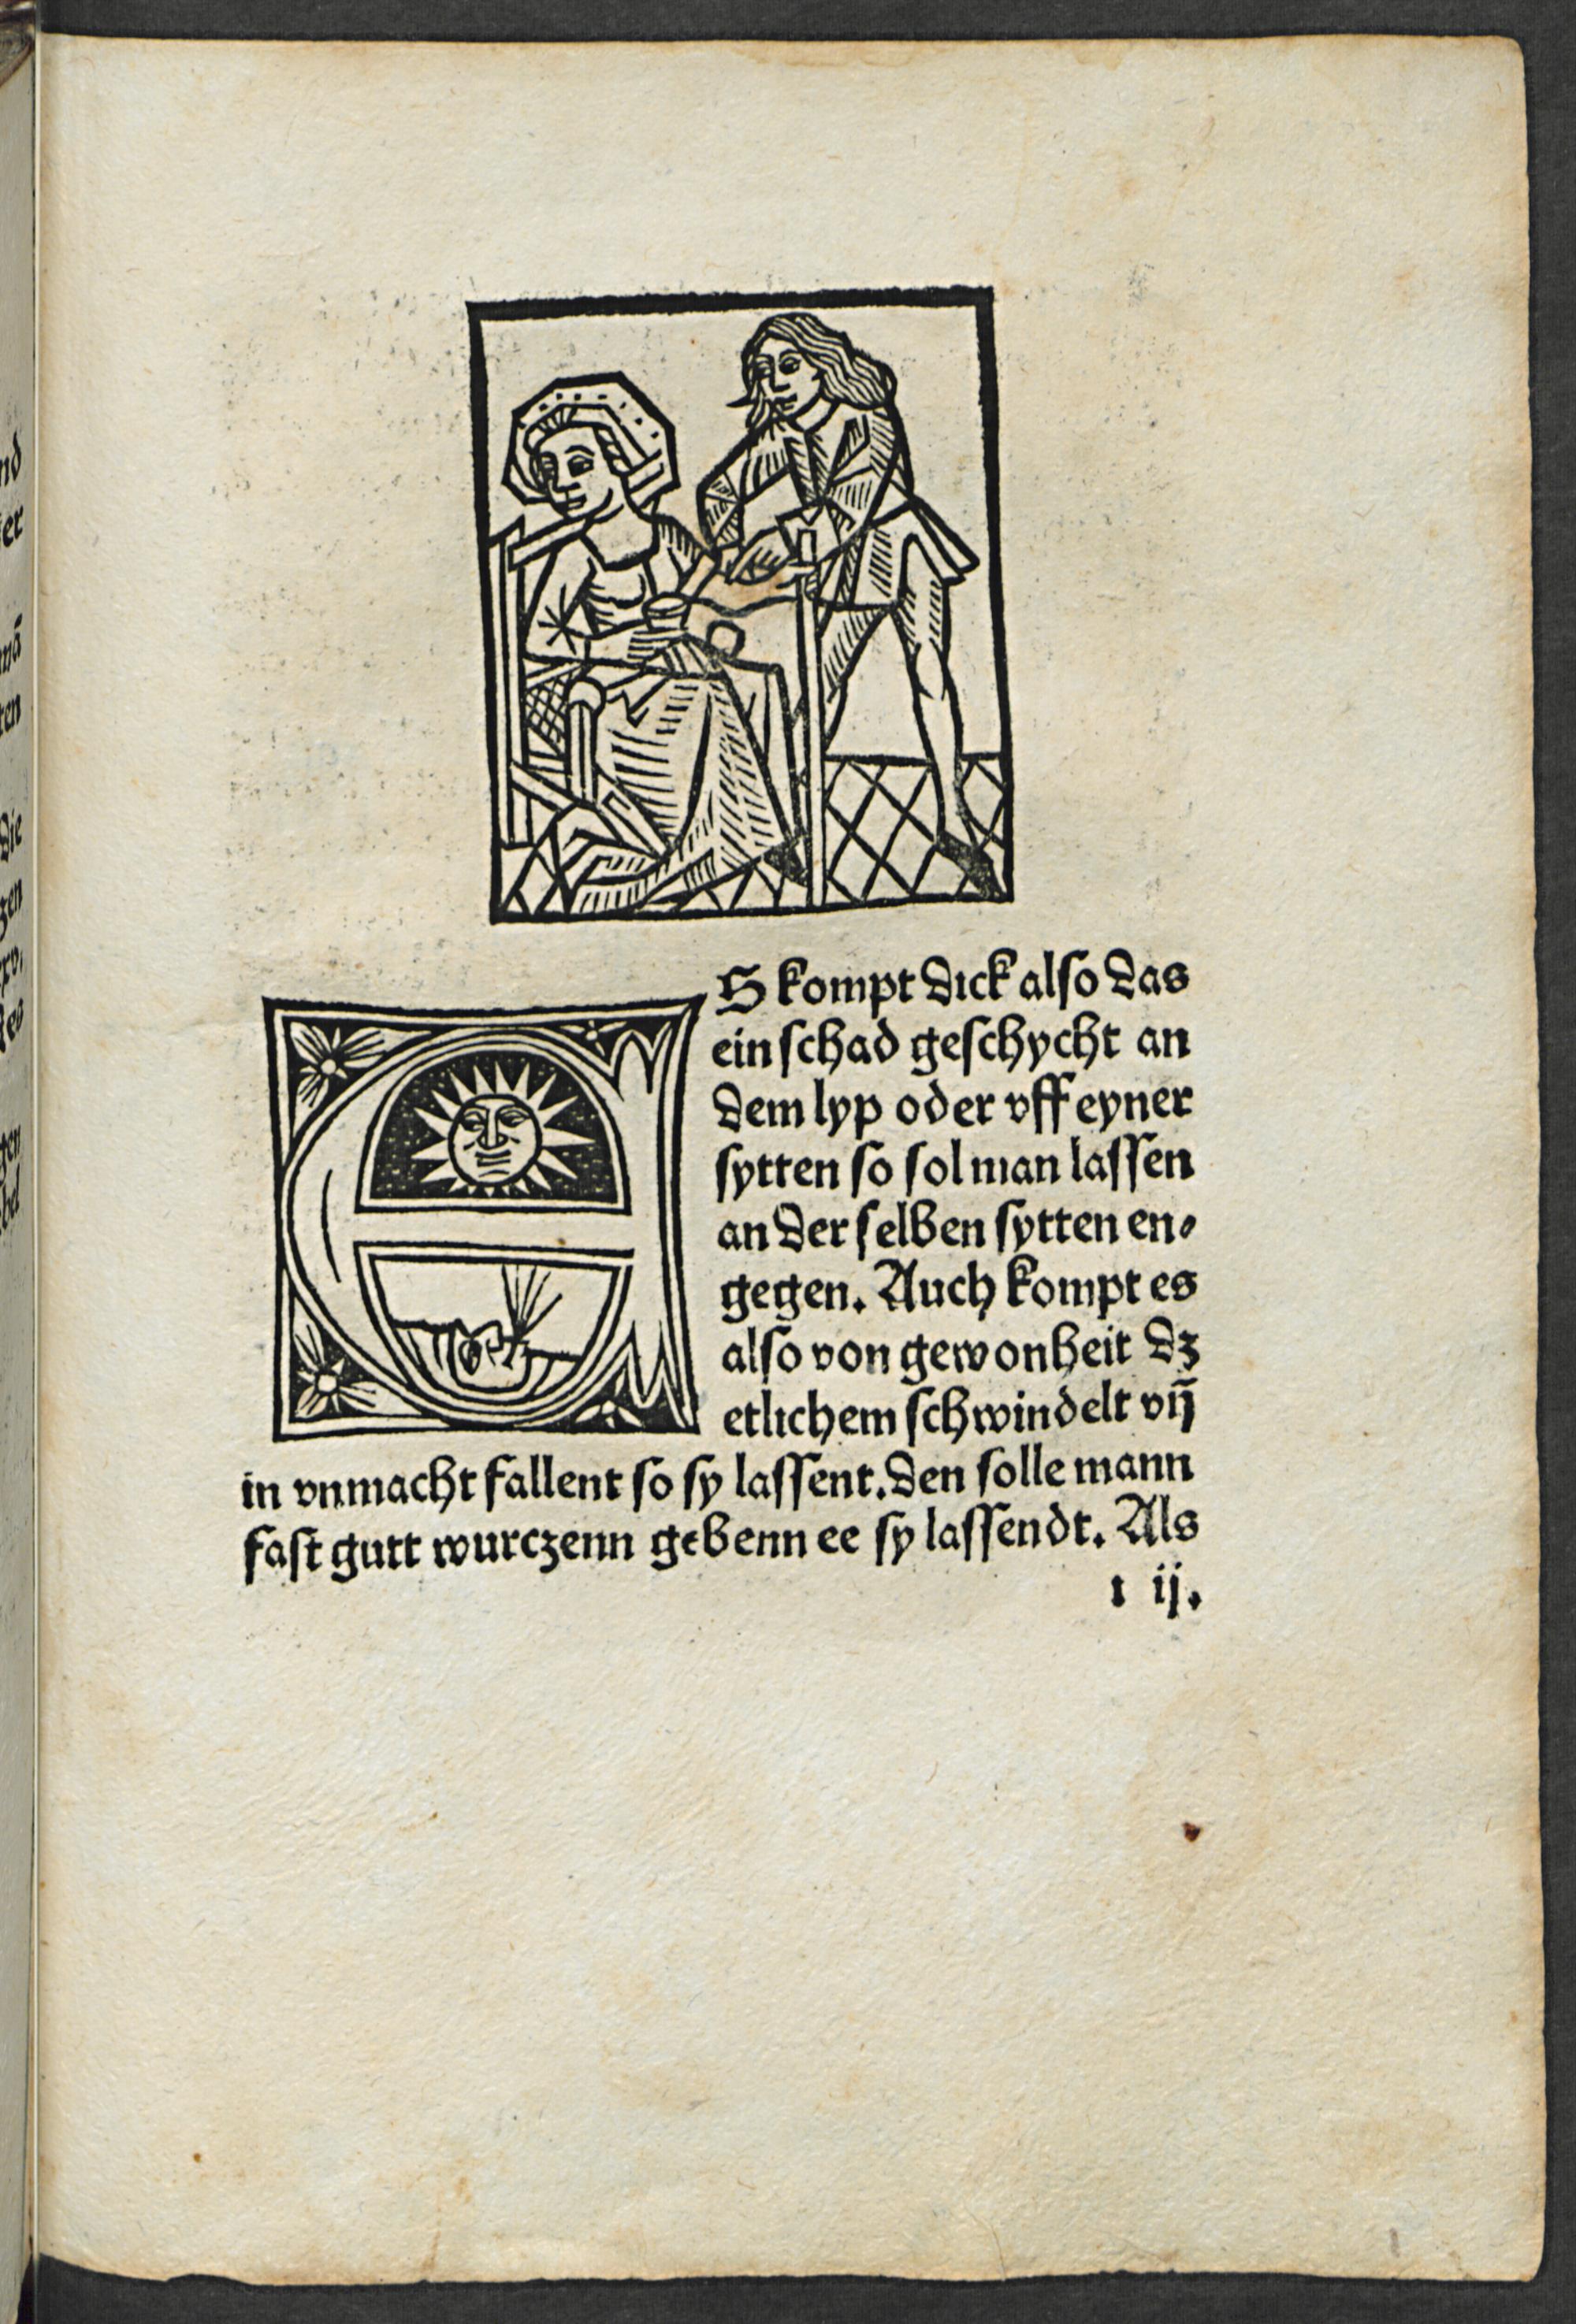 ES kompt dick also das
ein schad geschycht an
dem lyp oder vff eyner
sytten so sol man lassen
an der selben sytten en⸗
gegen. Auch kompt es
also von gewonheit dz
etlichem schwindelt vn̄
in vnmacht fallent so sy lassent. den solle mann
fast gutt wurczenn gebenn ee sy lassendt. Als
ı ij.